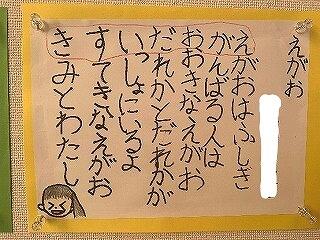 えがお
えがおはふしぎ
がんばる人は
おおきなえがお
だれかとだれかが
いっしょにいるよ
すてきなえがお
きみとわたし